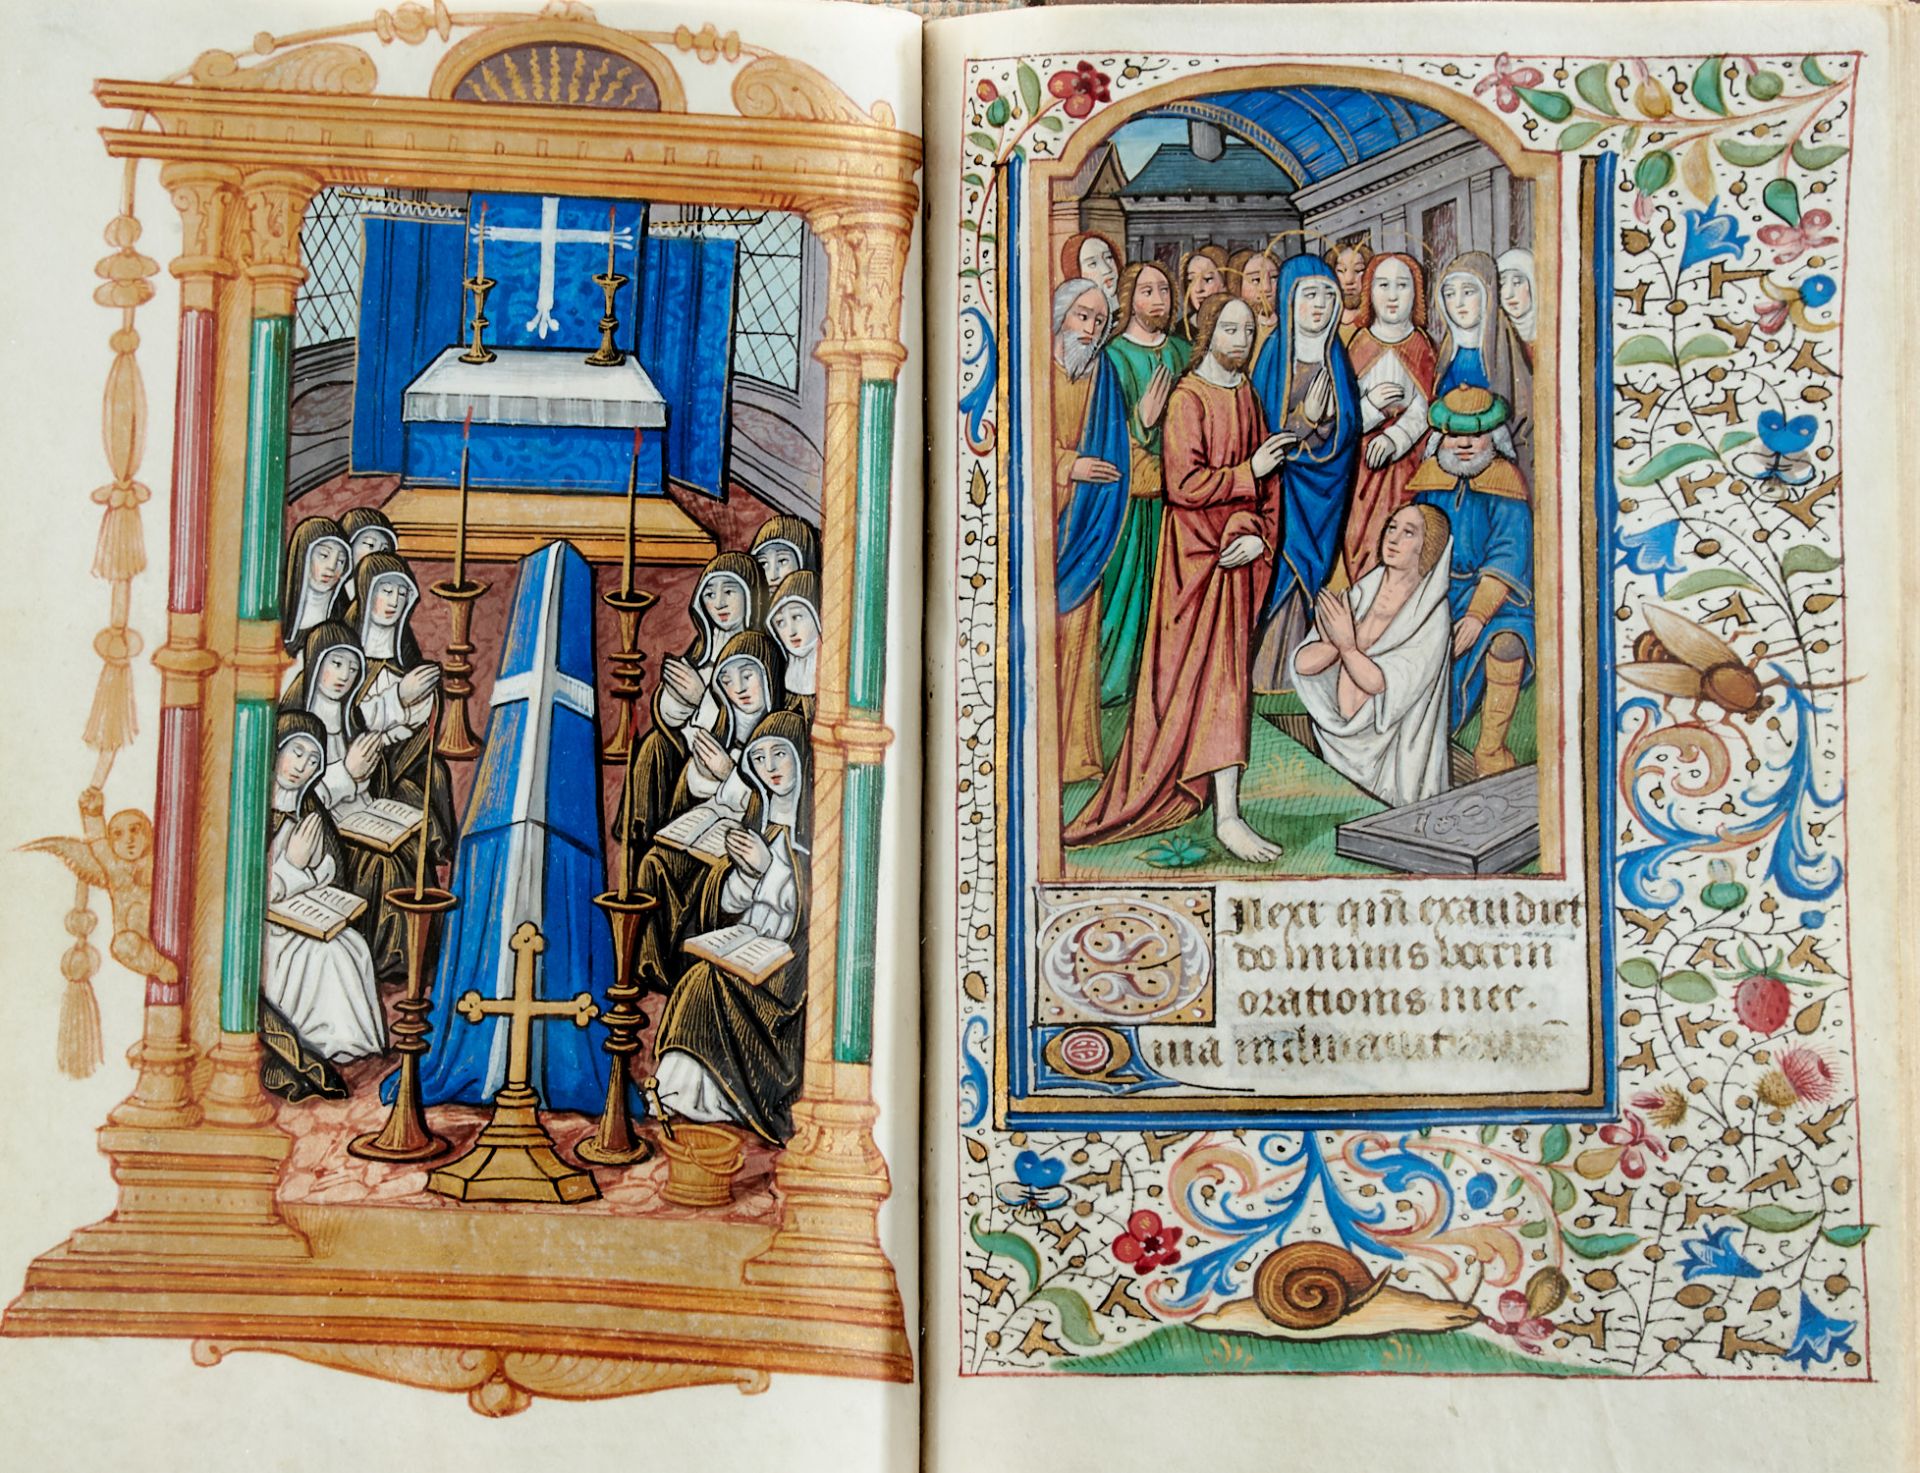 DIlexi qm̄ exaudiet
dominus vocem
orationis mee.
Quia inclinauit